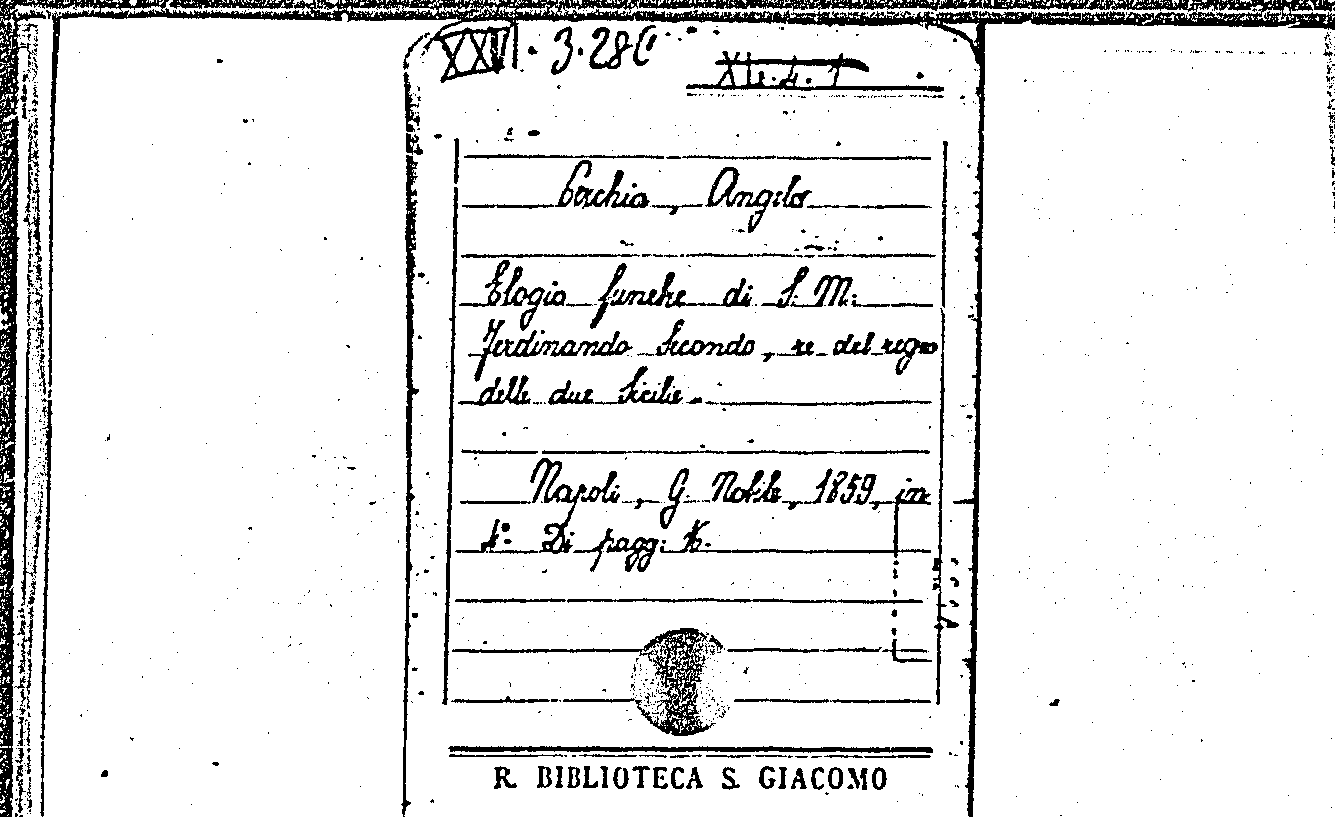 3.28
XLI.4.1
Angelo
Elogio funebre di S. M.
Ferdinando Secondo, re del regno
delle due Sicilie.
Napoli, G. Nobile, 1859, in
4° Di pagg.
R. BIBLIOTECA S. GIACOMO